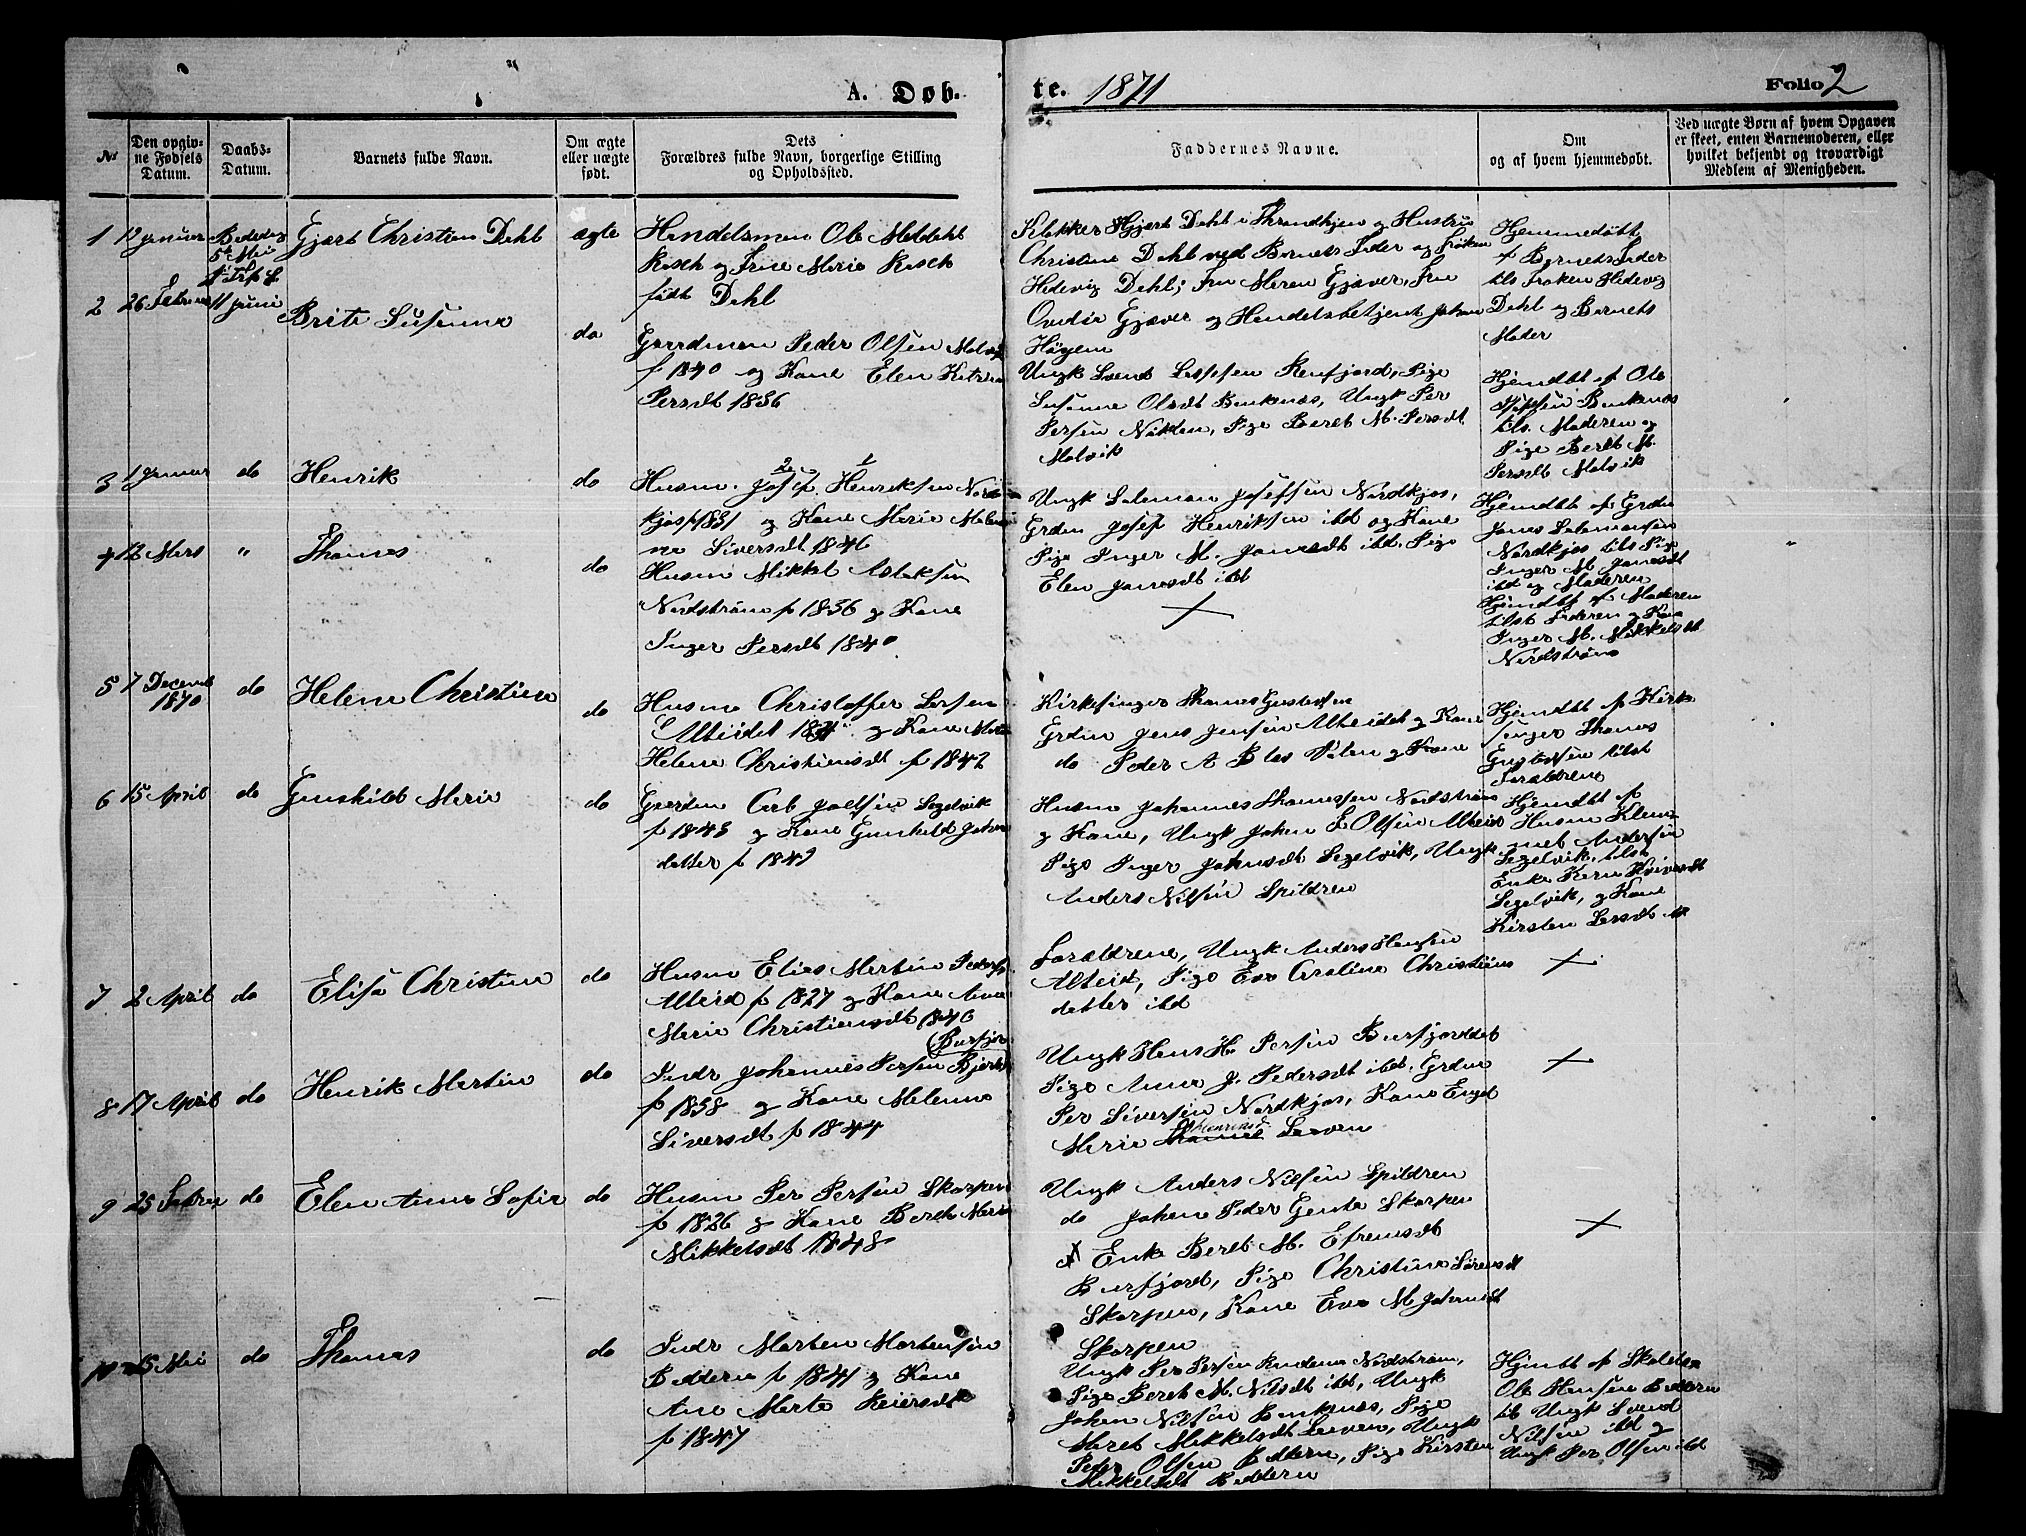 A. Døb-
te. 1871
Folio 2
№
Den opgiv-
ne Fødsels
Datum.
Daabs-
Datum.
Barnets fulde Navn.
Om ægte
eller uægte
født.
Dets
Forældres fulde Navn, borgerlige Stilling
og Opholdssted.
Faddernes Navne.
Om
og af hvem hjemmedøbt.
Ved uægte Børn af hvem Opgaven
er skeet, enten Barnemoderen, eller
hvilket bekjendt og troværdigt
Medlem af Menigheden.
1
12 Januar
5 Mai
Gjært Christian Dahl
ægte
Handelsman Ole Meldahl
Rasch og Frue Marie Rasch
født Dahl
Klokker Hjort Dahl i Throndhjem og Hustru
Christine Dahl ved Barnets Fader og Frøken
Hedevig Dahl; Fru Maren Gjæver, Fru
Ovedia Gjæver og Handelsbetjent Johan
Høyem
Hjemmedøbt
f Barnets Fader
tils Frøken Hedevig
Dahl og Barnets
Moder
2
26 Februar
11 Juni
Brita Susanna
do
Gaardman Peder Olsen Malvik
f 1840 og Kone Elen Katrina
Persdt 1836
Ungk Svend Larsen Renfjord, Pige
Susanne Olsdt Bankenæs, Ungk Per
Persen Nakken, Pige Beret M. Persdt
Malvik
Hjemdbt af Ole
Bankenæs
tils. Moderen og
Pige Beret M.
Persdt Malvik
3
1 Januar
do
Henrik
do
Husm. Josef Henriksen Nord
kjos f 1831 og Kone Marie Malen
na Siversdt 1846
Ungk Salamon Josefsen Nordkjos,
Grdm Josef Henriksen ibd og Kone
Pige Inger M. Jonasdt ibd. Pige
Elen Jonasdt ibd
Hjemdbt af Grdm
Jonas Salamonsen
Nordkjos tils Pige
Inger M Jonasdt
ibd og Moderen
4
12 Mars
"
Thomas
do
Husm Mikkel Aslaksen
Nordstrøm f 1836 og Kone
Inger Persdt 1840
Hjemdbt af Moderen
tilst Faderen og Kone
Inger M. Mikkelsdt
Nordstrøm
5
7 Decemb
1870
do
Helene Christine
do
Husm Christoffer Larsen
Alteidet 1834 og Kone Marie
Helene Christiansdt f 1842
Kirkesanger Thomas Gustavsen
Grdm Jens Jensen Alteidet og Kone
do Peder A Blas Valan og Kone
Hjemdbt af Kirke
sanger Thomas
Gustavsen tilst
Forældrene
6
15 April
do
Gunhild Maria
do
Gaardm Carl Joelsen Segelvik
f 1843 og Kone Gunhild Johan
datter f 1849
Husm Johannes Thomassen Nordstrøm
og Kone, Ungk Johan E Olsen Alteid
Pige Inger Johansdt Segelvik, Ungk
Anders Nilsen Spildren
Hjemdbt af
Husm Klem
met Andersen
Segelvik, tilst
Enke Karn
Segelvik, og Kone
Kirsten Larsdt
7
2 April
do
Elisa Christine
do
Husm Elias Martin Peders
Alteid f 1827 og Kone Anne
Marie Christiansdt 1840
Forældrene, Ungk Anders Hansen
Alteid, Pige Eva Caroline Christians
datter ibd
8
17 April
do
Henrik Martin
do
(Burfjor
Indr Johannes Persen Bjerk
f 1838 og Kone Malenna
Siversdt f 1844
Ungk Hans H. Persen Burfjorddet
Pige Anna J. Pedersdt ibd. Grdm
Per Siversen Nordkjos, Kone Engel
Marie Henriksd Leeven
9
25 Febru
do
Elen Anna Sofia
do
Husm Per Persen Skorpen
f 1826 og Kone Beret Maria
Mikkelsdt 1848
Ungk Anders Nilsen Spildren
do Johan Peder Ganta Skorpen
Enke Beret M. Efremsdt
Burfjord, Pige Christine Sørensdt
Skorpen, Kone Eva M Johansdt
Skorpen
10
15 Mai
do
Thomas
do
Indr Morten Mortensen
Baddern f 1841 og Kone
Ane Marta Reiersdt
f 1847
Ungk Per Persen Nordstrøm,
Pige Beret M. Nilsdt ibd, Ungk
Johan Nilsen Bankenæs, Pige
Maret Mikkelsdt Leeven, Ungk
Peder Olsen Baddern, Pige Kirsten
Mikkelsdt Baddern
Hjemdbt af Skolelæ
Ole Hansen Baddern
til Ungk Svend
Nilsen ibd og
Ungk Per Olsen ibd